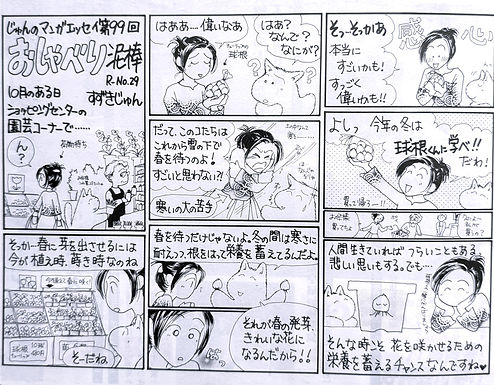 じゅんのマンガエッセイ第99回
おしゃべり泥棒
R-No.29
すずきじゅん
10月のある日
ショッピングセンターの
園芸コーナーで……
ん?
荷物持ち
そっか春に芽を出させるには
今が植え時、蒔き時なのね
球根
チューリップ
10球
そーだね
はああ…偉いなあ
チューリップの
球根
はあ?
なんで?
なにが?
だって、このコたちは
これから雪の下で
春を待つのよ!
すごいと思わない?!
寒いの大の苦手
春を待つだけじゃないよ。冬の間は寒さに
耐えつつ、根をはって栄養を蓄えてるんだよ。
それが春の発芽、
きれいな花に
なるんだから!!
そっそっかあ
本当に
すごいかも!
すっごく
偉いかも!!
感
心
よしっ 今年の冬は
球根くんに学べ!!
だわ!
買って帰ろー!!
人間生きていれば つらいこともある
悲しい思いもする。でも…
そんな時こそ 花を咲かせるための
栄養を蓄えるチャンスなんですね♥